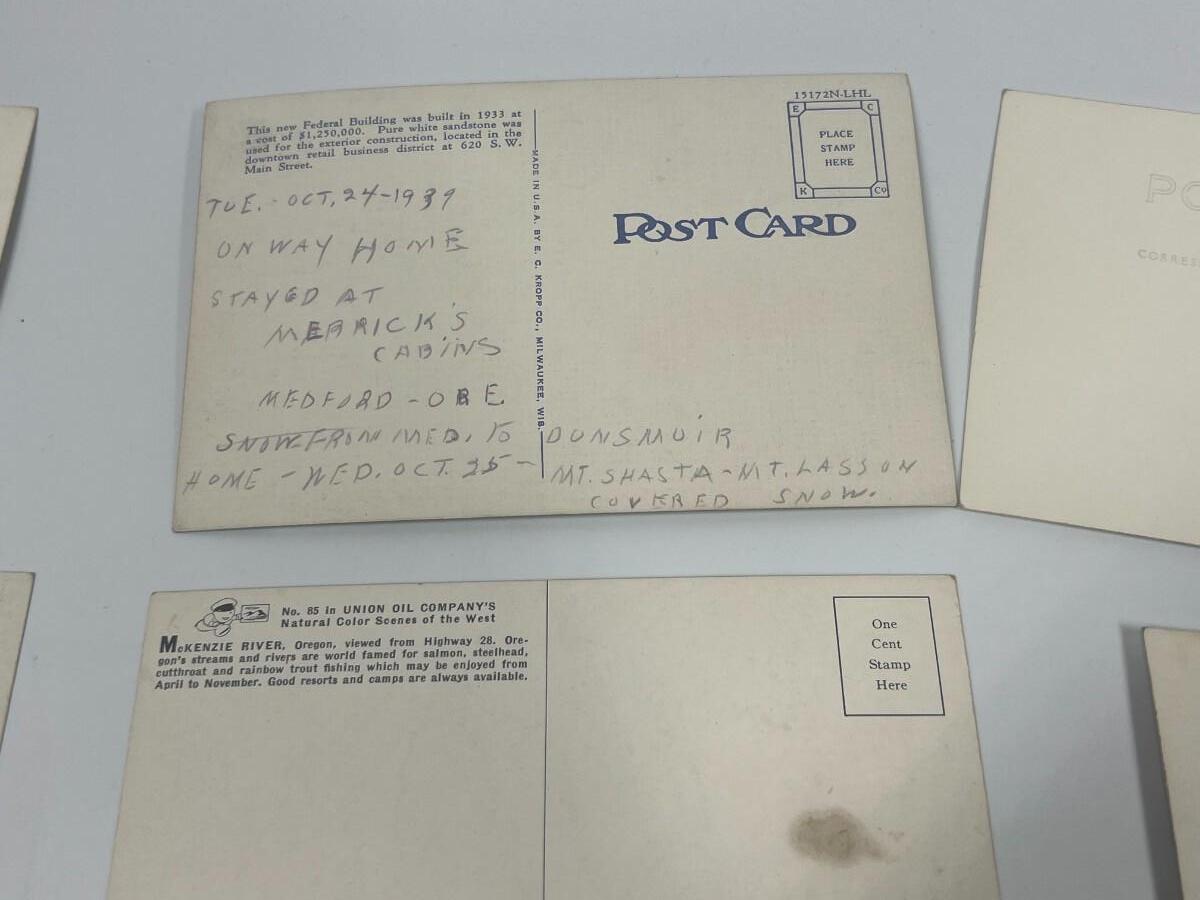 This new Federal Building was built in 1933 at
a cost of $1,250,000. Pure white sandstone was
used for the exterior construction, located in the
downtown retail business district at 620 S. W.
Main Street.
TUE. - OCT. 24-1939
ON WAY HOME
STAYED AT
MERRICK'S
CABINS
MEDFORD - ORE.
SNOW FROM MED. TO DUNSMUIR
HOME - WED. OCT. 25 - MT. SHASTA - MT. LASSON
COVERED SNOW.
MADE IN U.S.A. BY E. C. KROPP CO., MILWAUKEE, WIS.
15172N-LHL
E C
PLACE
STAMP
HERE
K Co
POST CARD
PO
CORRES
No. 85 in UNION OIL COMPANY'S
Natural Color Scenes of the West
McKENZIE RIVER, Oregon, viewed from Highway 28. Ore-
gon's streams and rivers are world famed for salmon, steelhead,
cutthroat and rainbow trout fishing which may be enjoyed from
April to November. Good resorts and camps are always available.
One
Cent
Stamp
Here